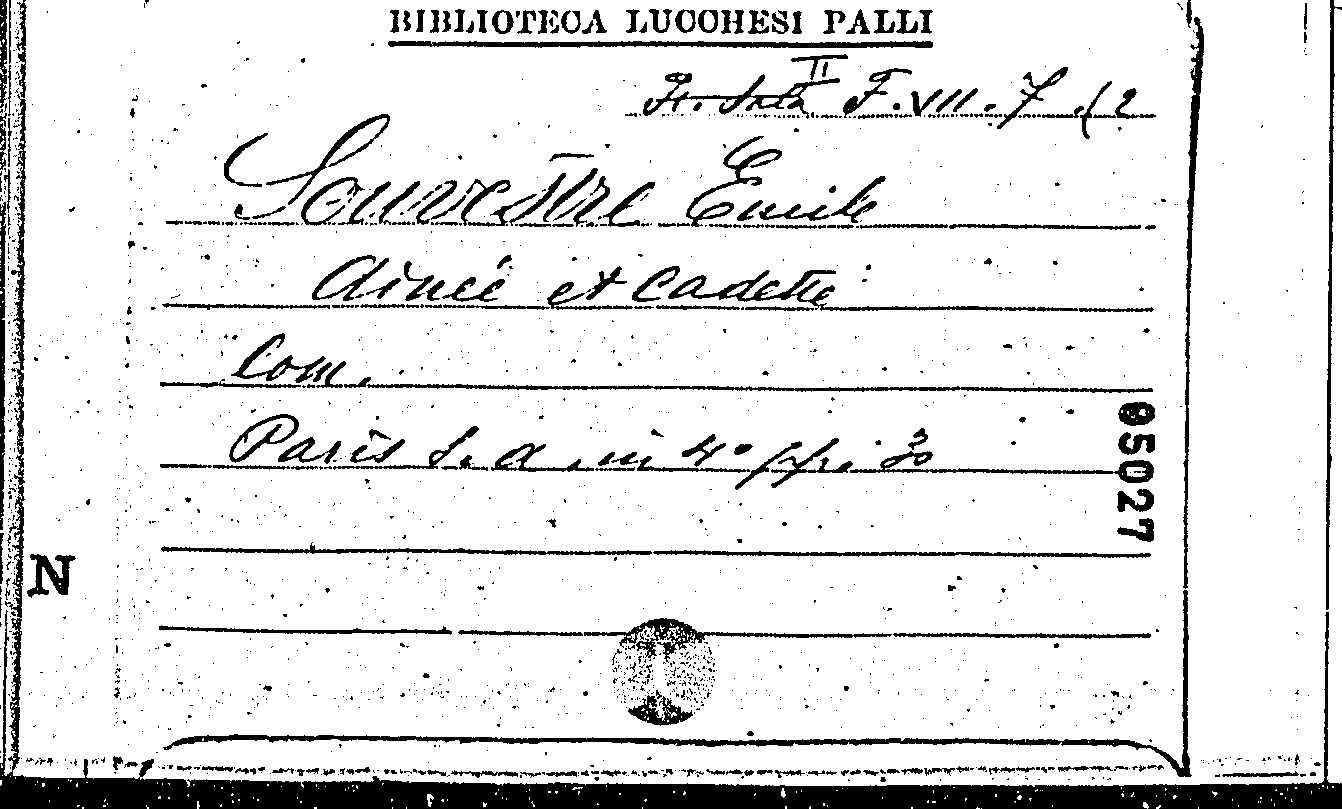 BIBLIOTECA LUCCHESI PALLI
II
F. VII. 7 (2
Souvestre Emile
Ainée et Cadette
Com.
Paris s. a. in 4° pp. 30
85027
N